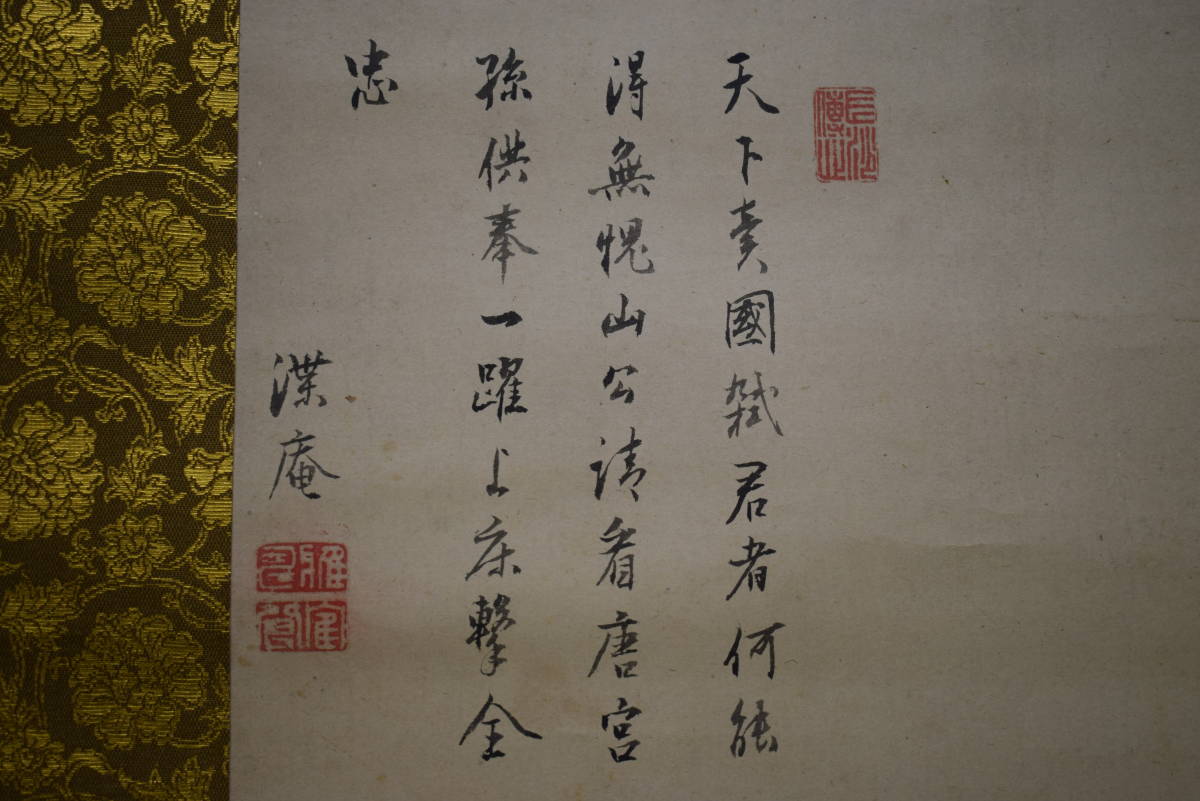 天下賣國弑君者何能
得無愧山公請看唐宮
猻供奉一躍上床擊全
忠
渫庵